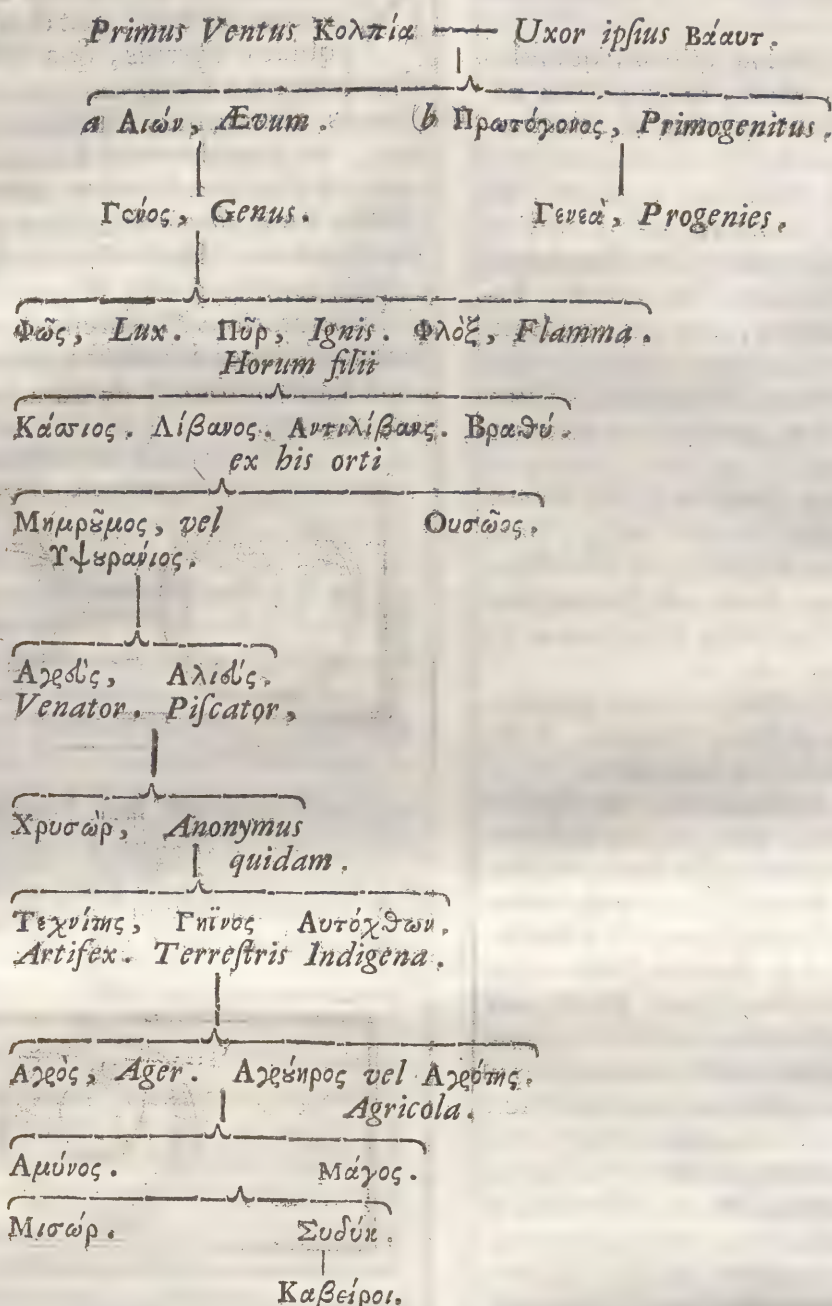 Primus Ventus Κολπία —— Uxor ipſius Βάαυτ.
a Αιών, Ævum. (b Πρωτόγονος, Primogenitus.
Γένος, Genus. Γενεὰ, Progenies.
Φῶς, Lux. Πῦρ, Ignis. Φλὸξ, Flamma.
Horum filii
Κάσσιος. Λίβανος. Αντιλίβανς. Βραθύ.
ex his orti
Μημρȣ͂μος, vel Ουσῶος.
Υψȣράνιος.
Αγρεὺς, Αλιεὺς.
Venator. Piſcator,
Χρυσὼρ, Anonymus
quidam.
Τεχνίτης, Γηϊνος Αυτόχθων.
Artifex. Terreſtris Indigena.
Αγρὸς, Ager. Αγρȣ́ηρος vel Αγρότης.
Agricola.
Αμύνος. Μάγος.
Μισώρ. Συδύκ.
Καβείροι.